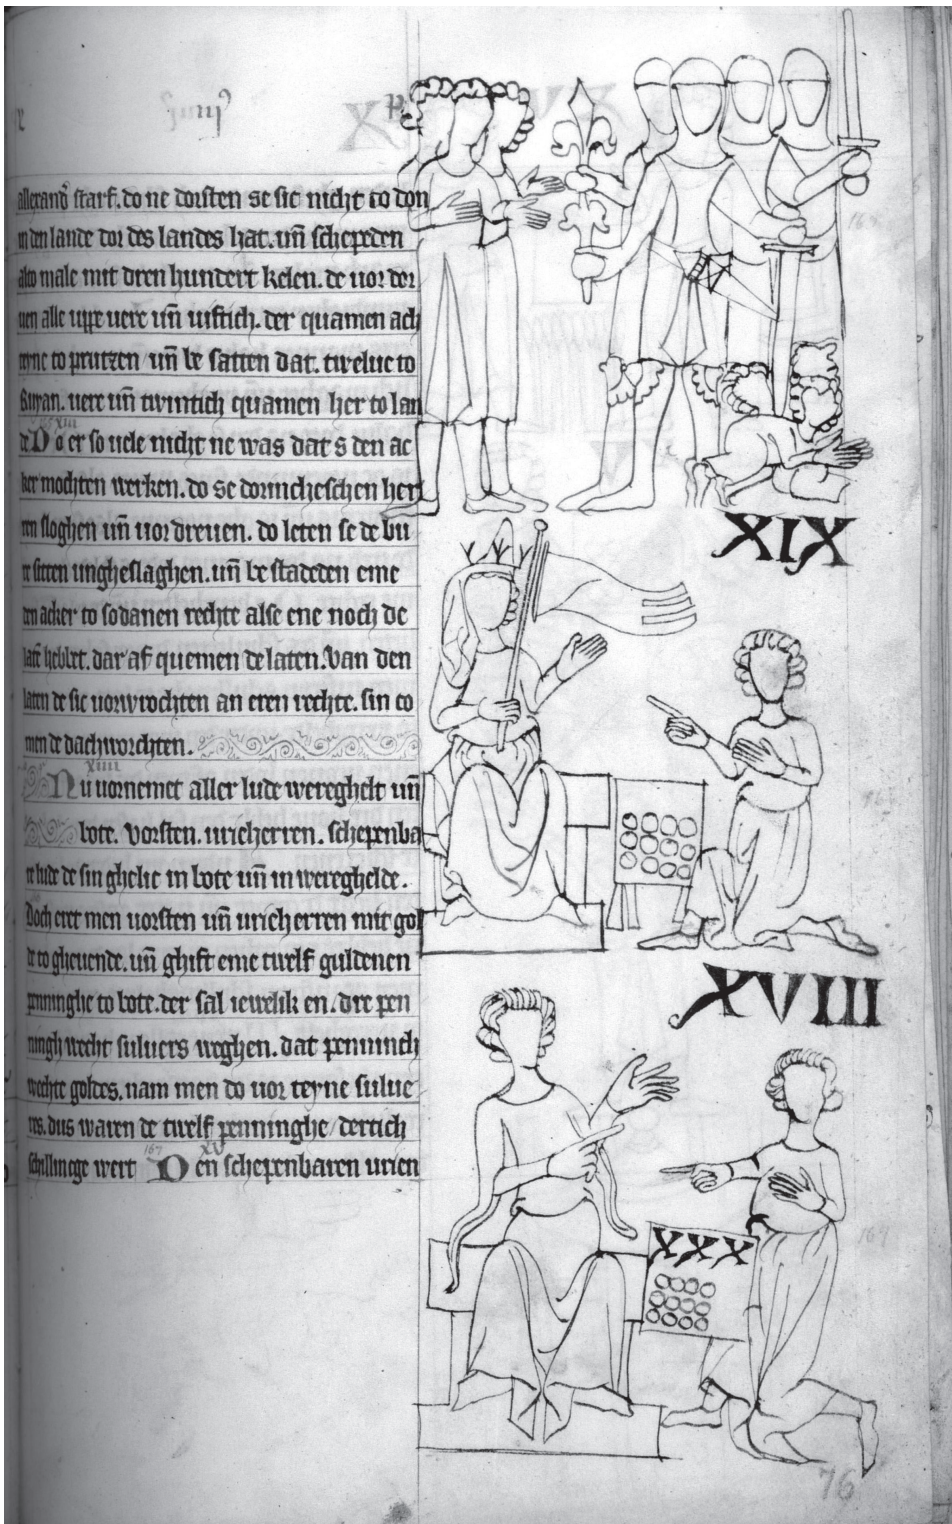 allexand͛ starf. do ne dorsten se sic nicht to don
in den lande dor des landes hat. un̄ schepeden
alto male mit dren hundert kelen. de uor der
uen alle uppe uere un̄ uiftich. der quamen ach
teyne to prutzen / un̄ be satten dat. twelue to
Ruyan. uere un̄ twintich quamen her to lan
de Do er so uele nicht ne was dat s den ac
xiii
ker mochten werken. do se dorincheschen her
ren sloghen un̄ uordreuen. do leten se de bu
re sitten ungheslaghen. un̄ be stadeden eme
den acker to sodanen rechte alse ene noch de
late hebbet. dar af quemen de laten. Van den
laten de sic uorwrochten an eren rechte. sin co
men de dachworchten.
xiiii
Nu uornemet aller lude wereghelt un̄
bote. Vorsten. uricherren. schepenba
re lude de sin ghelic in bote un̄ in wereghelde.
Doch eret men uorsten un̄ uricherren mit gol
de to gheuende. un̄ ghift eme twelf guldenen
penninghe to bote. der sal iewelik en / dre pen
ningh wecht suluers weghen. dat penninch
wechte goldes. nam men do uor teyne sulue
res. dus waren de twelf penninghe / dertich
schillinge wert Den schepenbaren urien
167
xv
XIX
XVIII
XXX
167
76